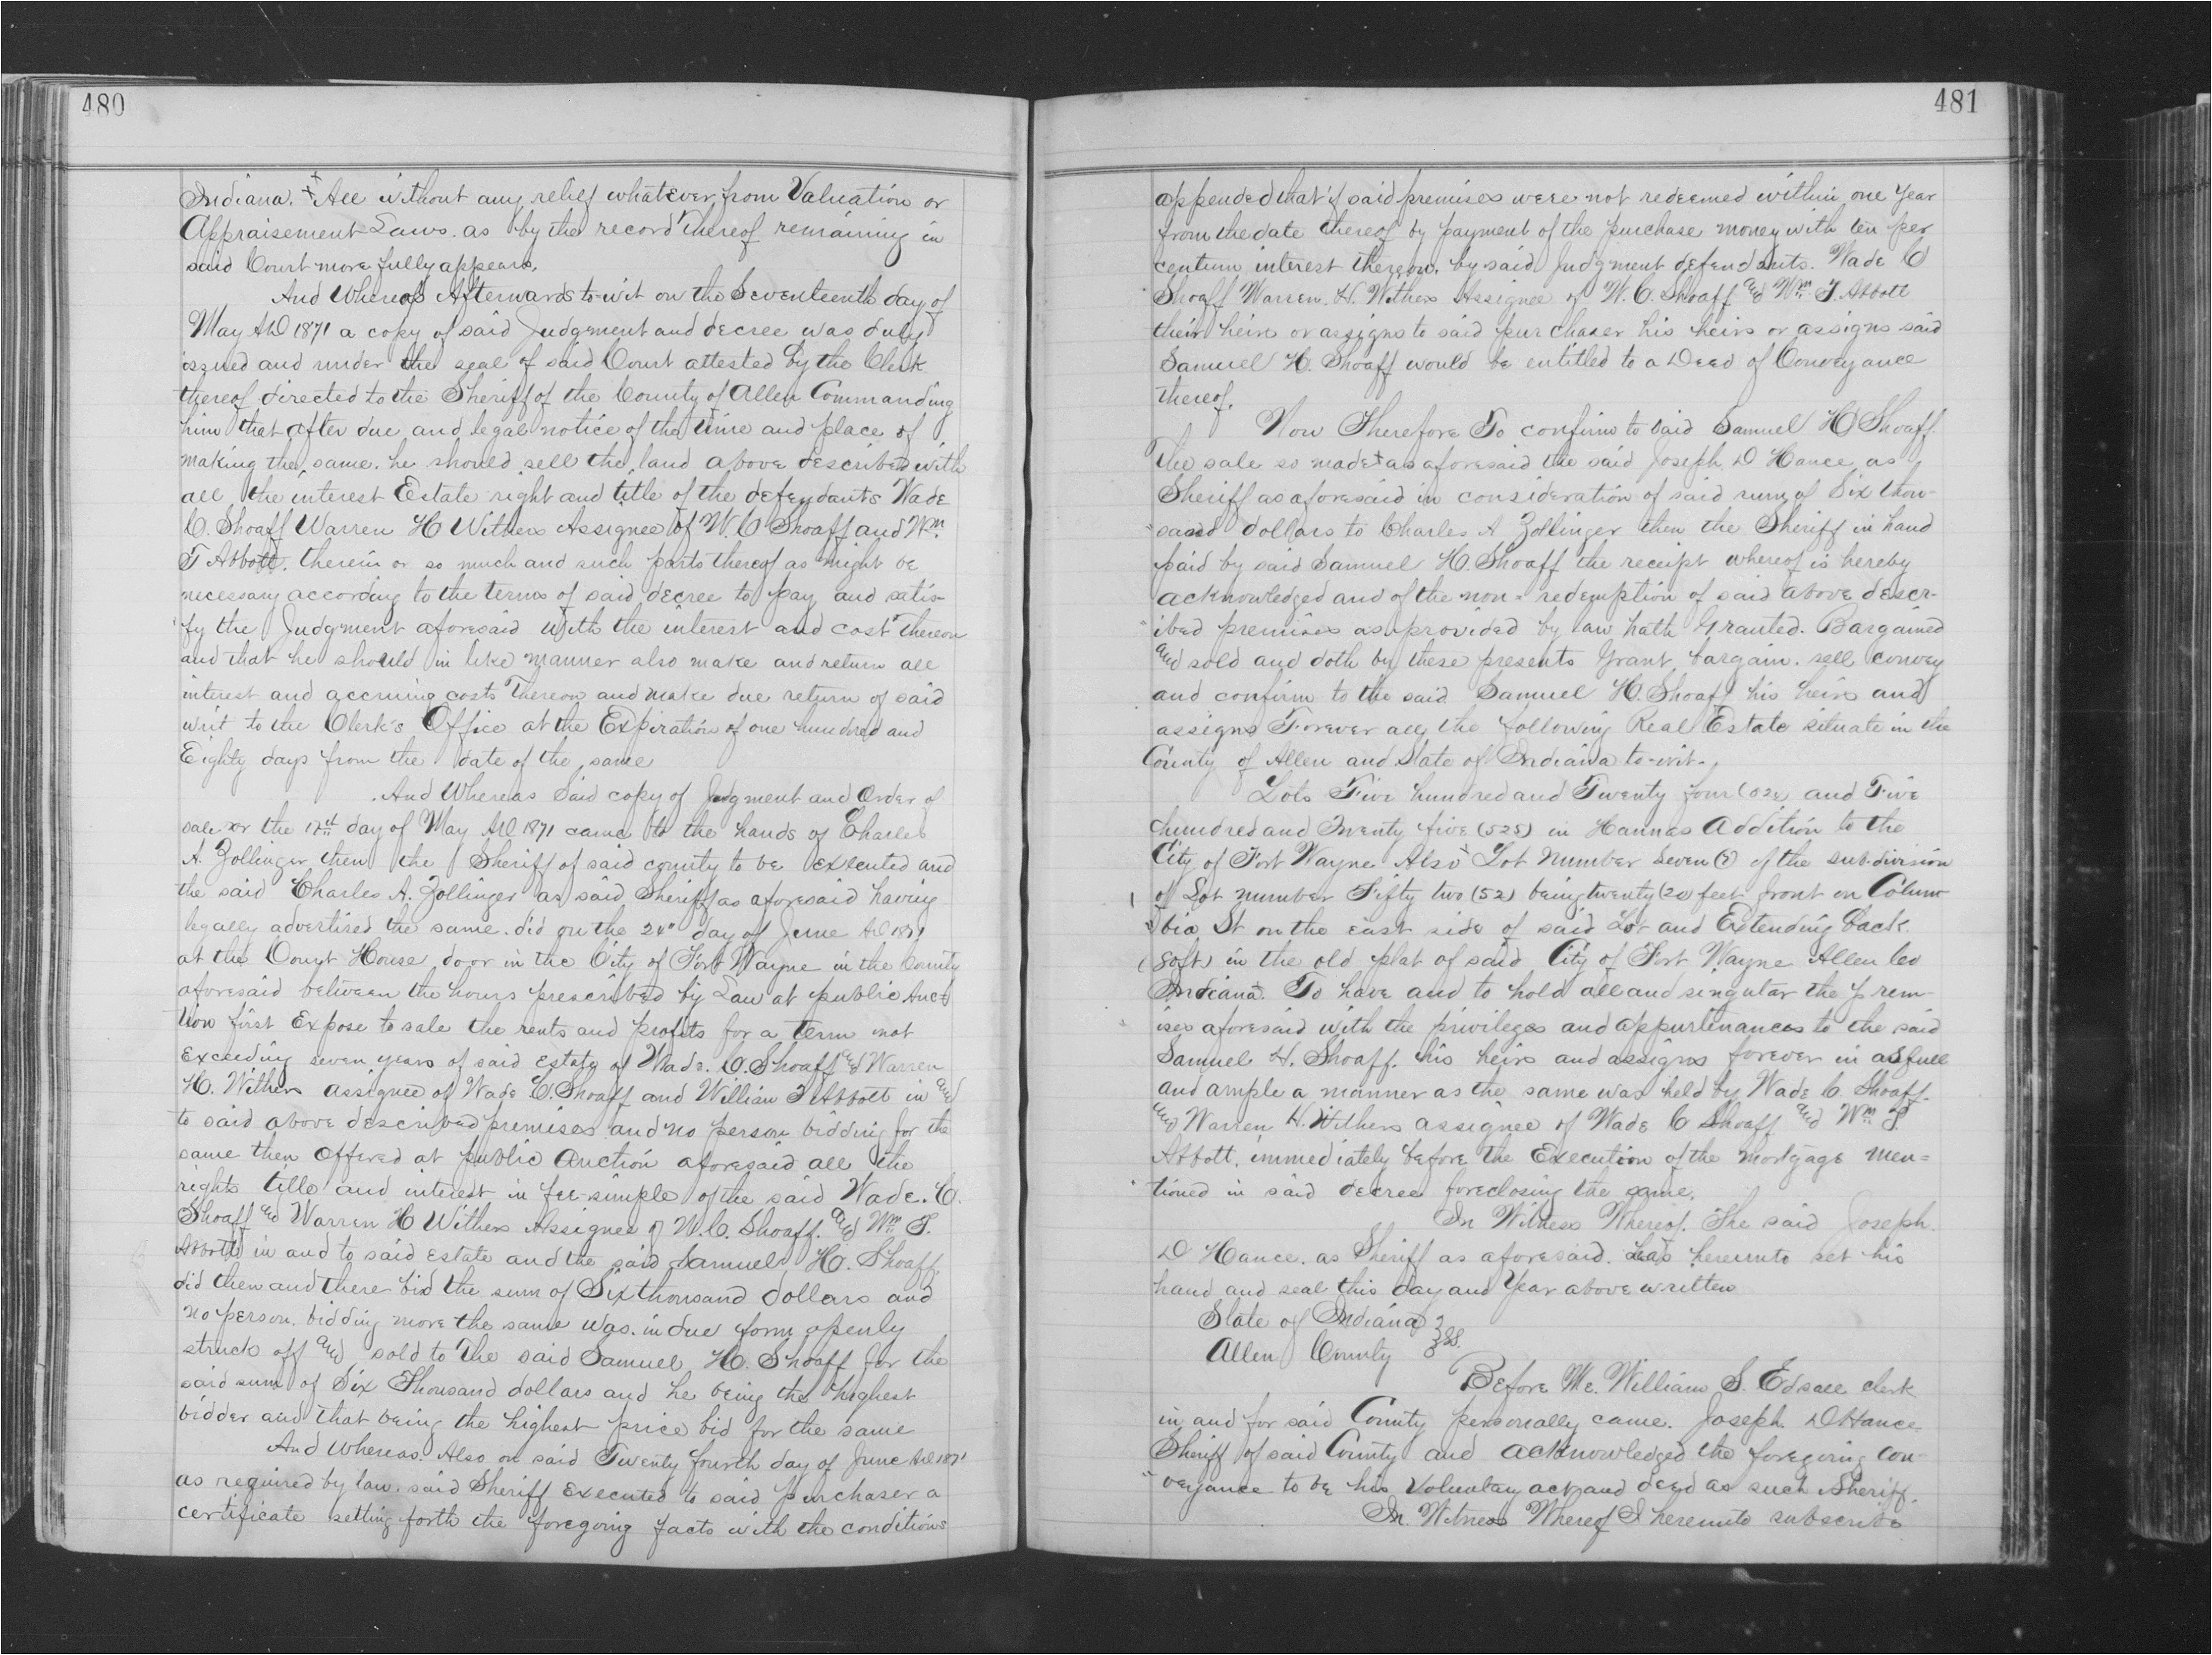 480
Indiana. All without any relief whatever from Valuation or
Appraisement Laws. as by the record thereof remaining in
said Court more fully appears.
And Whereas Afterwards to-wit on the Seventeenth day of
May AD 1871 a copy of said Judgement and decree was duly
issued and under the seal of said Court attested by the Clerk
thereof directed to the Sheriff of the County of Allen Commanding
him that after due and legal notice of the time and place of
making the same. he should sell the land above described with
all the interest Estate right and title of the defendants Wade
C. Shoaff Warren H Withers Assignee of W. C Shoaff and Wm
T Abbott. therein or so much and such parts thereof as might be
necessary according to the terms of said decree to pay and satis-
fy the Judgment aforesaid with the interest and cost thereon
and that he should in like manner also make and return all
interest and accruing costs thereon and make due return of said
writ to the Clerk's Office at the Expiration of one hundred and
Eighty days from the date of the same
And Whereas Said copy of Judgment and Order of
sale on the 17th day of May AD 1871 came to the hands of Charles
A. Zollinger then the Sheriff of said county to be executed and
the said Charles A. Zollinger as said Sheriff as aforesaid having
legally advertised the same. did on the 24" day of June AD 1871
at the Court House door in the City of Fort Wayne in the County
aforesaid between the hours prescribed by Law at public Auct
tion first Expose to sale the rents and profits for a term not
Exceeding seven years of said Estate of Wade. C. Shoaff and Warren
H. Withers assignee of Wade C. Shoaff and William T Abbott in and
to said above described premises and no person bidding for the
same then Offered at public Auction aforesaid all the
rights title and interest in fee-simple of the said Wade. C.
Shoaff and Warren H Withers Assignee of W. C. Shoaff. and Wm T.
Abbott in and to said Estate and the said Samuel H. Shoaff.
did then and there bid the sum of Six thousand dollars and
no person. bidding more the same was. in due form openly
struck off and sold to The said Samuel H. Shoaff for the
said sum of Six Thousand dollars and he being the highest
bidder and that being the highest price bid for the same
And Whereas. Also on said Twenty fourth day of June AD 1871
as required by law. said Sheriff Executed to said purchaser a
certificate setting forth the foregoing facts with the conditions
481
appended that if said premises were not redeemed within one year
from the date thereof by payment of the purchase money with ten per
centum interest thereon. by said Judgment defendants. Wade C
Shoaff Warren. H. Withers Assignee of W. C. Shoaff and Wm T. Abbott
their heirs or assigns to said purchaser his heirs or assigns said
Samuel H. Shoaff would be entitled to a Deed of Conveyance
thereof.
Now Therefore To confirm to said Samuel H Shoaff.
The sale so made as aforesaid the said Joseph D Hance as
Sheriff as aforesaid in consideration of said sum of Six thou-
sand dollars to Charles A Zollinger then the Sheriff in hand
paid by said Samuel H. Shoaff the receipt whereof is hereby
acknowledged and of the non-redemption of said above descr-
ibed premises as provided by law hath Granted. Bargained
and sold and doth by these presents Grant, bargain. sell convey
and confirm to the said Samuel H. Shoaff his heirs and
assigns Forever all the following Real Estate situate in the
County of Allen and State of Indiana to-wit.
Lots Five hundred and Twenty four (524 and Five
hundred and Twenty five (525) in Hannas Addition to the
City of Fort Wayne Also Lot Number Seven (7) of the sub-division
of Lot number Fifty two (52) being twenty (20) feet front on Colum
bia St on the east side of said Lot and Extending back
80ft) in the old plat of said City of Fort Wayne Allen Co
Indiana. To have and to hold all and singular the prem-
ises aforesaid with the privileges and appurtinances to the said
Samuel H. Shoaff. his heirs and assigns forever in as full
and ample a manner as the same was held by Wade C. Shoaff.
and Warren H. Withers assignee of Wade C Shoaff and Wm T
Abbott. immediately before the Execution of the mortgage men=
tioned in said decree foreclosing the same.
In Witness Whereof. The said Joseph.
D Hance. as Sheriff as aforesaid. has hereunto set his
hand and seal this day and Year above written
State of Indiana
Allen County SS.
Before Me. William S. Edsall clerk
in and for said County personally came. Joseph. D Hance
Sheriff of said County and acknowledged the foregoing con-
veyance to be his Voluntary act and deed as such Sheriff.
In. Witness Whereof I hereunto subscribe